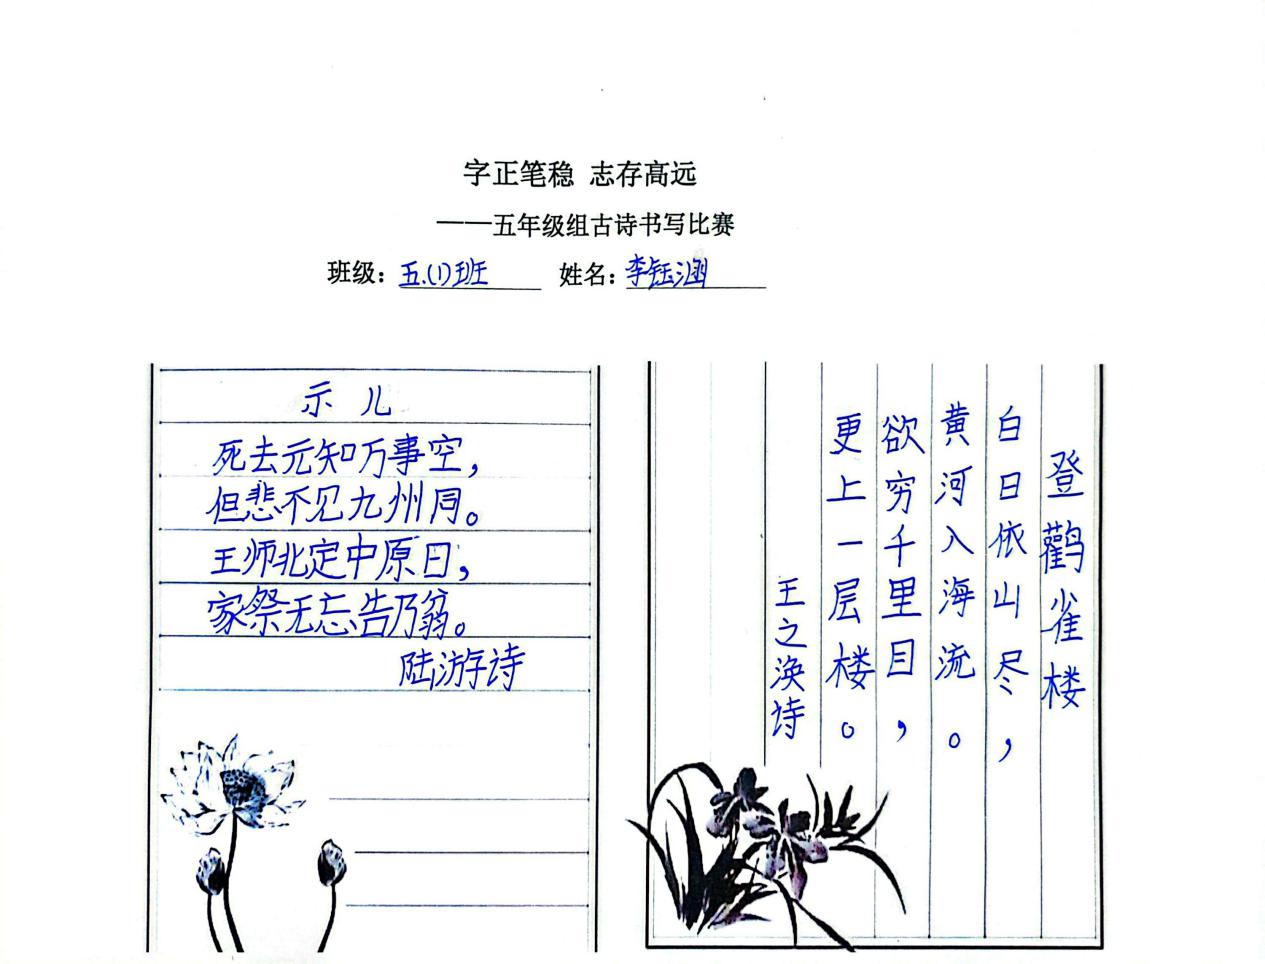 字正笔稳 志存高远
——五年级组古诗书写比赛
班级：五.(1)班 姓名：李钰涵
示儿
死去元知万事空，
但悲不见九州同。
王师北定中原日，
家祭无忘告乃翁。
陆游诗
登鹳雀楼
白日依山尽，
黄河入海流。
欲穷千里目，
更上一层楼。
王之涣诗